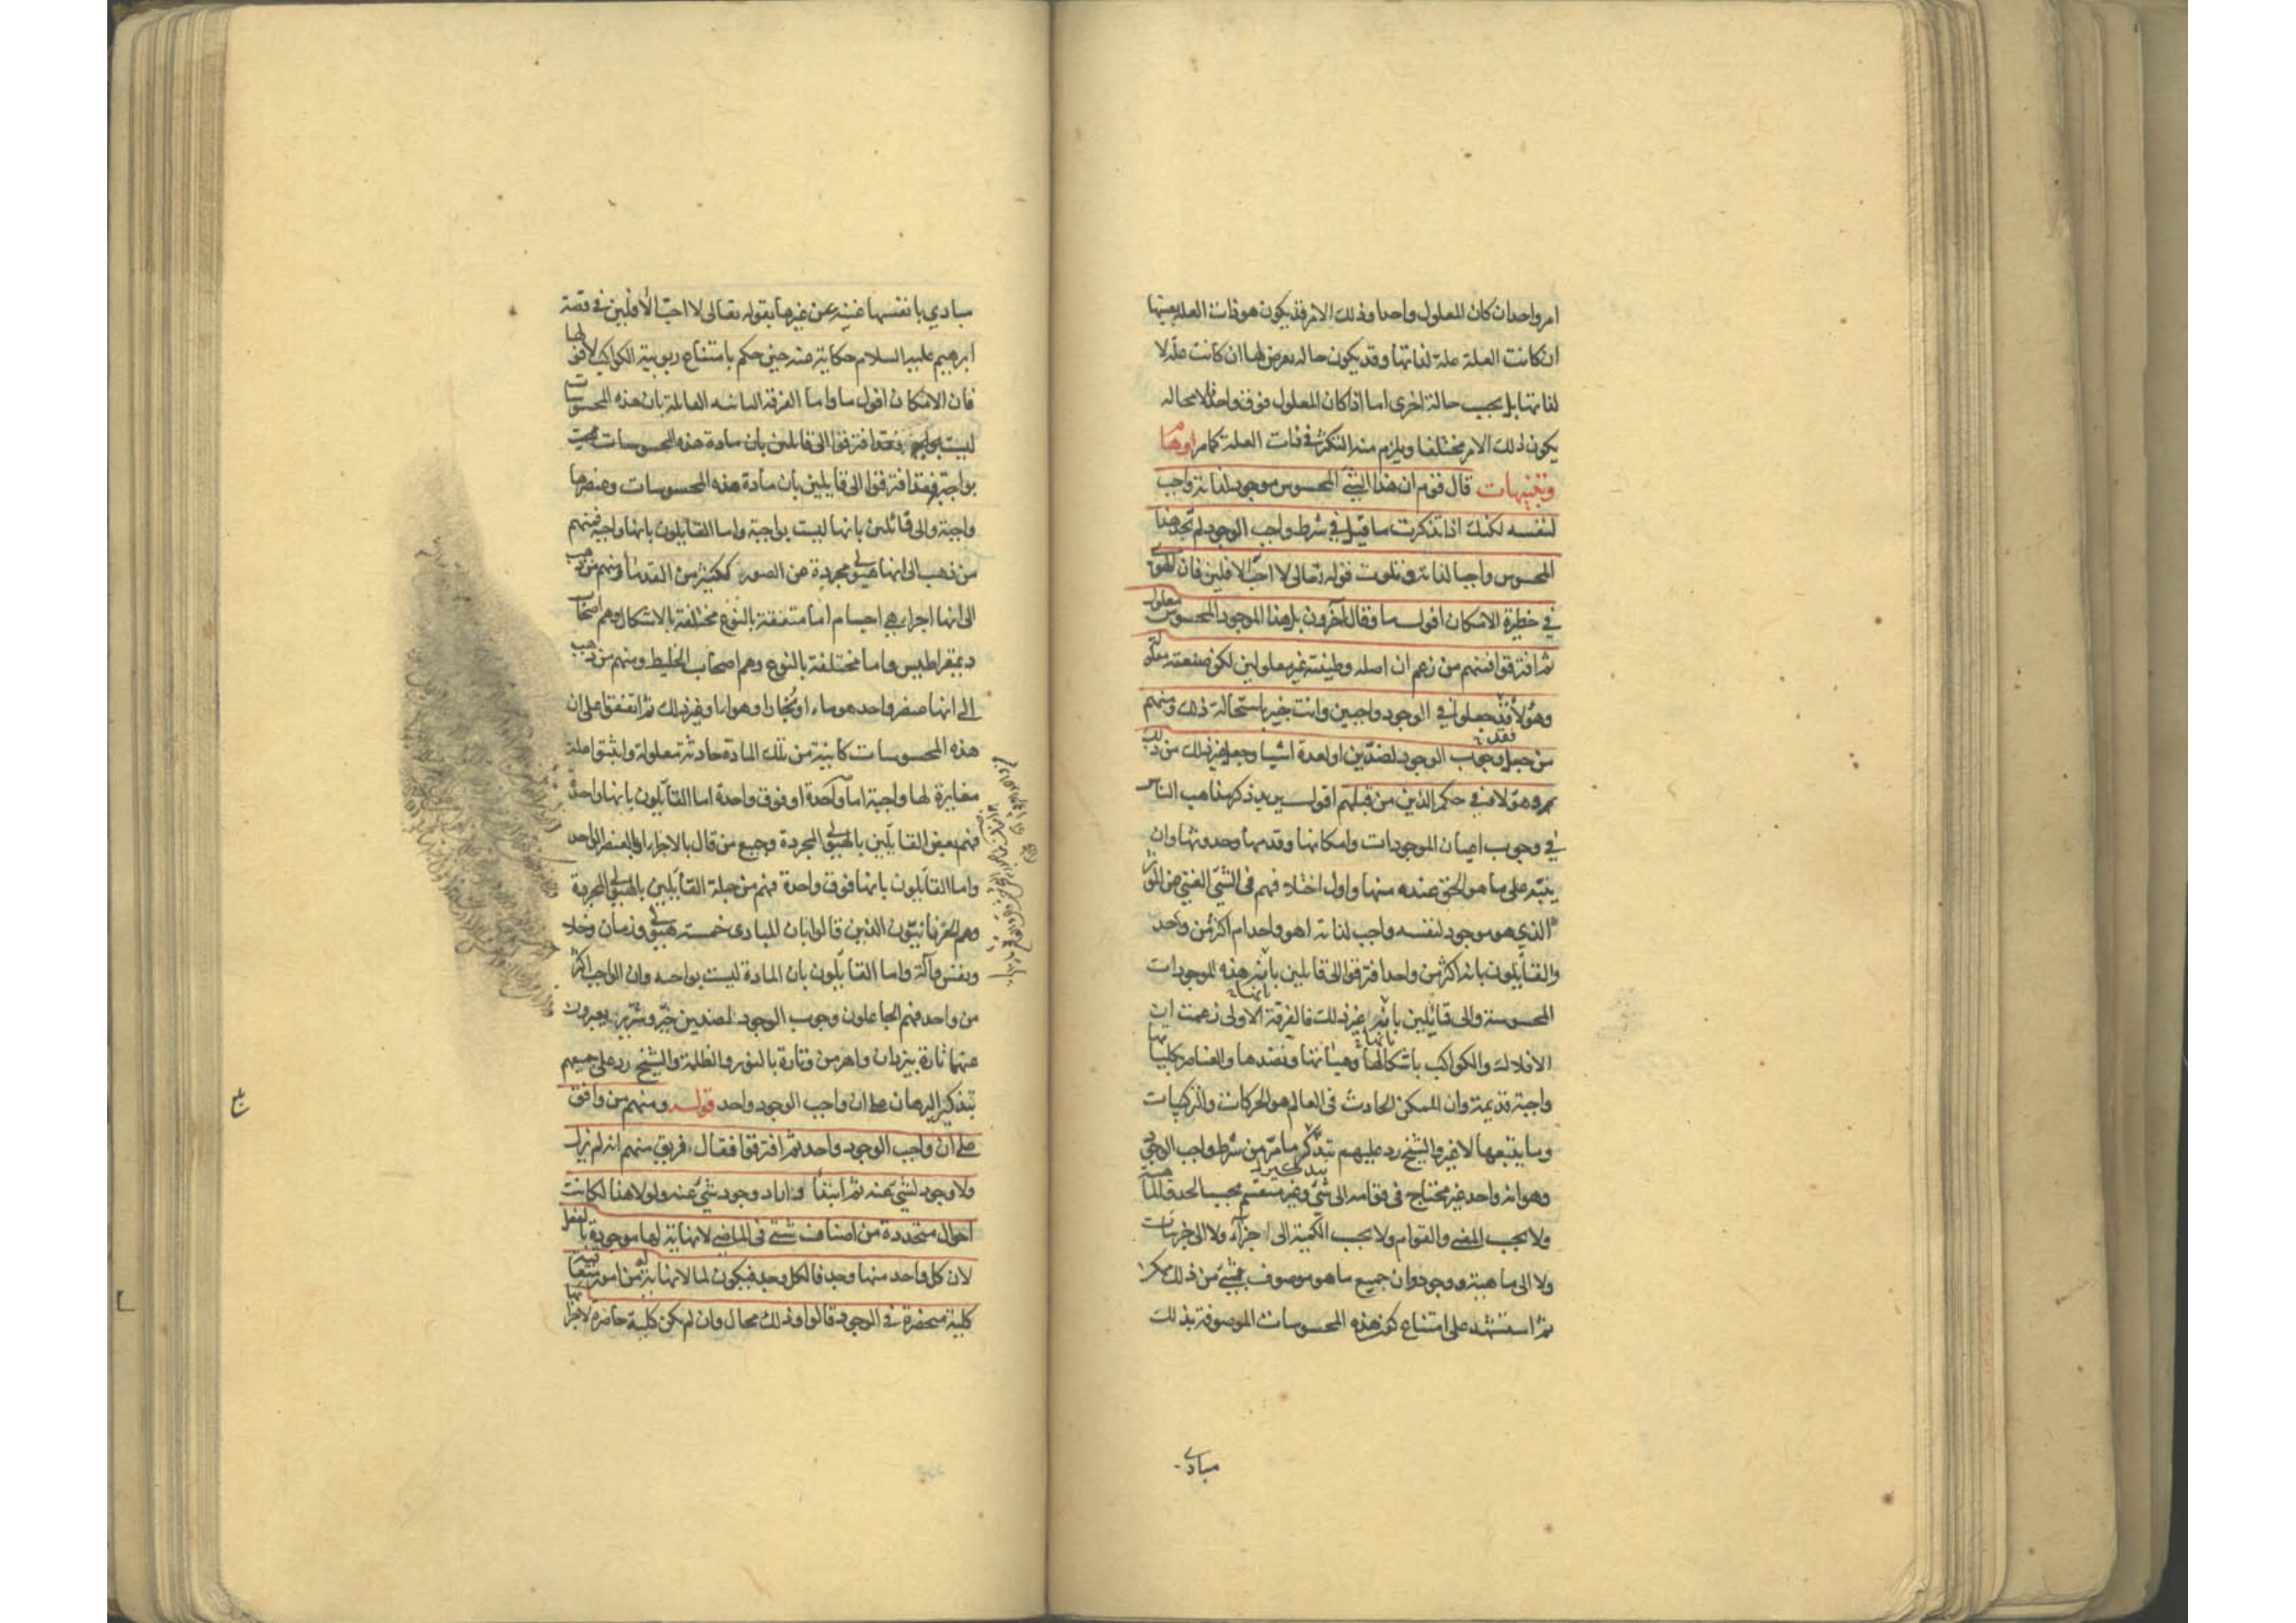 امر واحد ان كان المعلول واحدا وذلك الامر قد يكون هو ذات العلة بعينها
ان كانت العلة علة لذاتها وقد يكون حالة يعرض لها ان كانت علة لا
لذاتها بل بحسب حالة اخرى اما اذا كان المعلول فوق واحد فلا محالة
يكون ذلك الامر مختلفا ويلزم منه التكثر في ذات العلة كما مر اوهام
وتنبيهات قال قوم ان هذا الشئ المحسوس موجود لذاته واجب
لنفسه لكنك اذا تذكرت ما قيل في شرط واجب الوجود لم تجد هذا
المحسوس واجبا لذاته وتلوت قوله تعالى لا احب الافلين فان الهوى
في حظيرة الامكان افول ما وقال آخرون بل هذا الموجود المحسوس معلول
ثم افترقوا فمنهم من زعم ان اصله وطينته غير معلولين لكن صنعته معلولة
وهؤلاء قد جعلوا في الوجود واجبين وانت خبير باستحالة ذلك ومنهم
من جعل وجوب الوجود لضدين او لعدة اشيا وجعل غير ذلك من ذلك
وهؤلاء في حكم الذين من قبلهم اقول يريد ذكر مذاهب الناس
في وجوب اعيان الموجودات وامكانها وقدمها وحدوثها وان
ينبه على ما هو الحق عنده منها واول اختلافهم في الشئ الغني عن المؤثر
الذي هو موجود لنفسه واجب لذاته اهو واحد ام اكثر من واحد
والقائلون بانه اكثر من واحد افترقوا الى قايلين بانه هذه الموجودات
المحسوسة والى قائلين بانه غير ذلك فالفرقة الاولى زعمت ان
الافلاك والكواكب باشكالها وهيأتها ونضدها والعناصر بكلياتها
واجبة قديمة وان الممكن الحادث في العالم هو الحركات والتركيبات
وما يتبعها لا غير والشيخ رد عليهم بتذكر ما مر من شرط واجب الوجود
وهو انه واحد غير محتاج في قوامه الى شئ وغير منقسم بحسب الحد والماهية
ولا بحسب المعنى والقوام ولا بحسب الكمية الى اجزاء ولا الى جزئيات
ولا الى ماهية ووجود وان جميع ما هو موصوف بشئ من ذلك ممكن
ثم استشهد على امتناع كون هذه المحسوسات الموصوفة بذلك
مبادى
مبادي بانفسها غنية عن غيرها بقوله تعالى لا احب الأفلين في قصة
ابرهيم عليه السلام حكاية عنه حين حكم بامتناع ربوبية الكواكب لافولها
فان الامكان افول ما واما الفرقة الثانية القائلة بان هذه المحسوسات
ليست بواجبة فقد افترقوا الى قائلين بان مادة هذه المحسوسات ليست
بواجبة فقد افترقوا الى قايلين بان مادة هذه المحسوسات وعنصرها
واجبة والى قائلين بانها ليست بواجبة واما القايلون بانها واجبة فمنهم
من ذهب الى انها هيولى مجردة عن الصور ككثير من القدماء ومنهم من ذهب
الى انها اجزاء هي اجسام اما متفقة بالنوع مختلفة بالاشكال وهم اصحاب
ديمقراطيس واما مختلفة بالنوع وهم اصحاب الخليط ومنهم من ذهب
الى انها عنصر واحد هو ماء او بخار او هواء او غير ذلك ثم اتفقوا على ان
هذه المحسوسات كاينة من تلك المادة حادثة معلولة واثبتوا علة
مغايرة لها واجبة اما واحدة او فوق واحدة اما القائلون بانها واحدة
فهم بعض القائلين بالهيولى المجردة وجميع من قال بالاجزاء او العنصر الواحد
واما القائلون بانها فوق واحدة فهم من جملة القائلين بالهيولى المجردة
وهم الحرنانيون الذين قالوا بان المبادى خمسة هيولى وزمان وخلاء
ونفس وآله واما القائلون بان المادة ليست بواحبه وان الواجب اكثر
من واحد فهم الجاعلون وجوب الوجود لضدين خير وشرير يعبرون
عنهما تارة بيزدان واهرمن وتارة بالنور والظلمة والشيخ رد على جميعهم
بتذكير البرهان على ان واجب الوجود واحد قوله ومنهم من وافق
على ان واجب الوجود واحد ثم افترقوا فقال فريق منهم انه لم يزل
ولا وجود لشئ عنه ثم ابتدأ واراد وجود شئ عنه ولولا هذا لكانت
احوال متجددة من اصناف شتى في الماضي لا نهاية لها موجودة بالفعل
لان كل واحد منها وجد فالكل وجد فيكون لما لا نهاية له من امور متعاقبة
كلية منحصرة في الوجود قالوا وذلك محال وان لم يكن كلية حاصرة لاجزائها